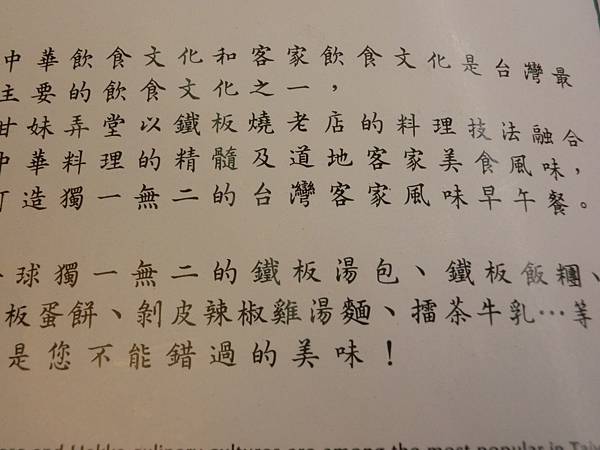 中華飲食文化和客家飲食文化是台灣最
主要的飲食文化之一，
甘妹弄堂以鐵板燒老店的料理技法融合
中華料理的精髓及道地客家美食風味，
打造獨一無二的台灣客家風味早午餐。
球獨一無二的鐵板湯包、鐵板飯糰、
板蛋餅、剝皮辣椒雞湯麵、擂茶牛乳…等
是您不能錯過的美味！
and Hakka culinary cultures are among the most popular in Taiw